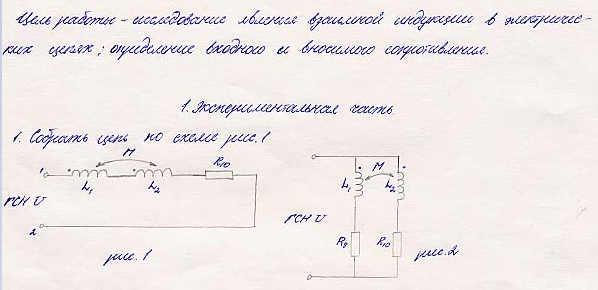 Цель работы - исследование явления взаимной индукции в электричес-
ких цепях; определение входного и вносимого сопротивления.
1. Экспериментальная часть.
1. Собрать цепь по схеме рис. 1
M
R10
1
L1
L2
ГСН U
2
рис. 1
M
L1
L2
ГСН U
R9
R10
рис. 2